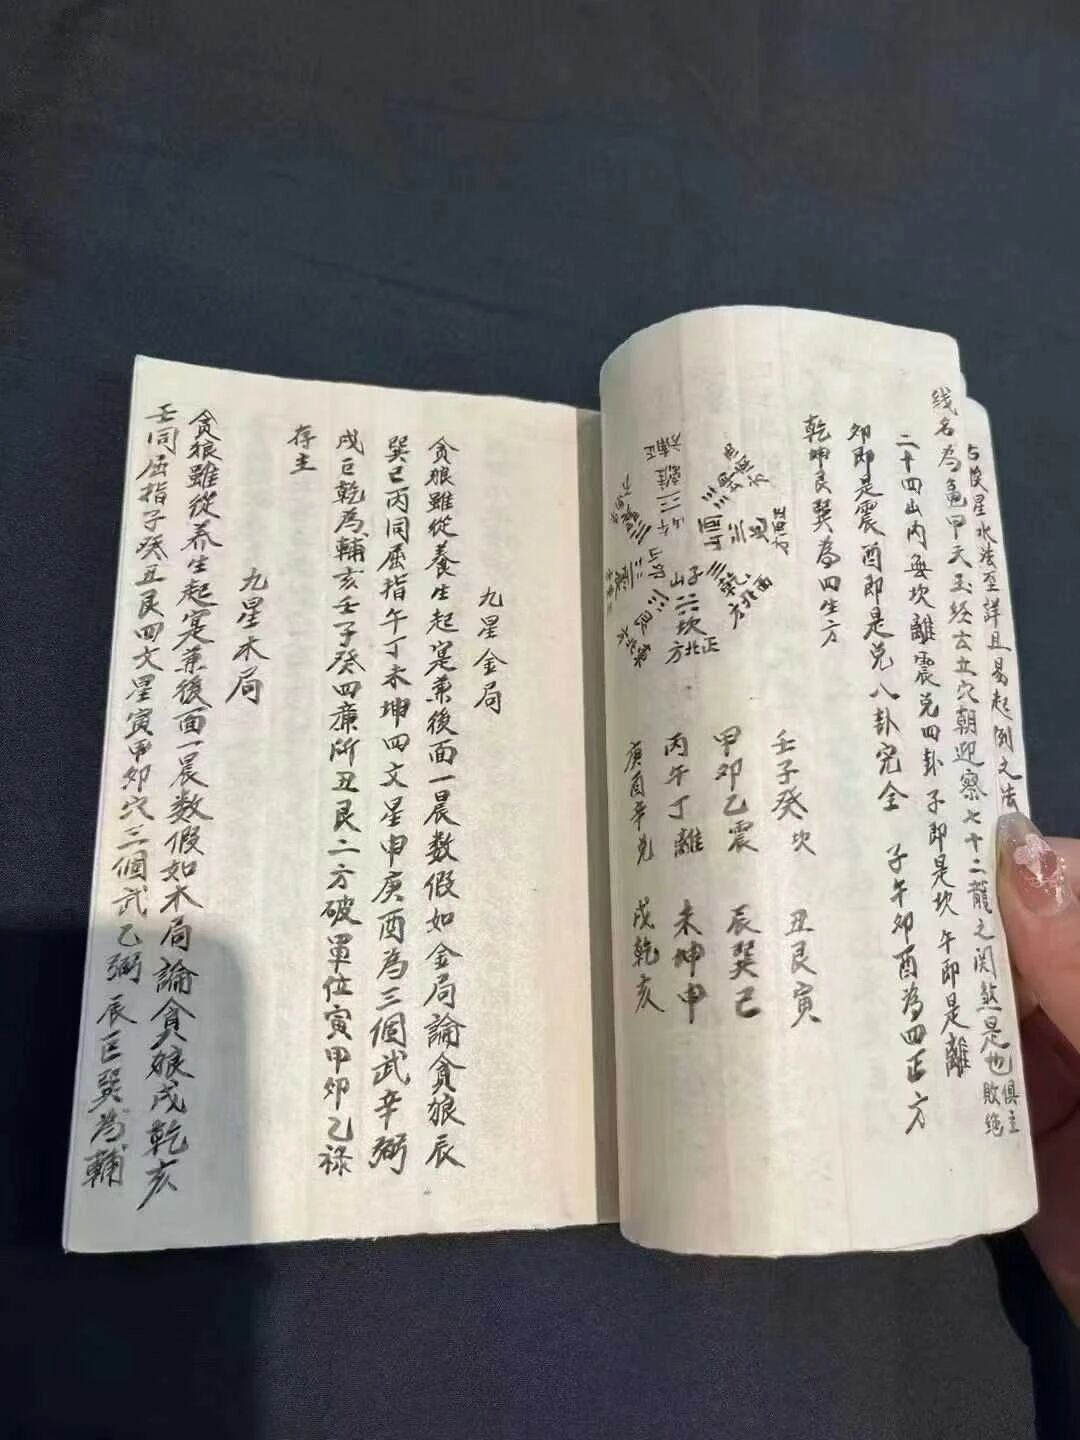 线名為龜甲天玉經云立穴朝迎察七十二龍之関煞是也俱主敗絶
二十四山内無坎離震兑四卦子即是坎午即是離
卯即是震酉即是兑八卦完全 子午卯酉為四正方
乾坤艮巽為四生方
壬子癸坎 丑艮寅
甲卯乙震 辰巽巳
丙午丁離 未坤申
庚酉辛兑 戌乾亥
乾
方北西
山子
坎
方北正
九星金局
貪狼雖從養生起寔兼後面一晨数假如金局論貪狼辰
巽巳丙同屈指午丁未坤四文星申庚酉為三個武辛弼
戌巨乾為輔亥壬子癸四廉所丑艮二方破軍位寅甲卯乙禄
存主
九星木局
貪狼雖從养生起寔兼後面一晨数假如木局論貪狼戌乾亥
壬同屈指子癸丑艮四文星寅甲卯穴三個武乙弼辰巨巽為輔